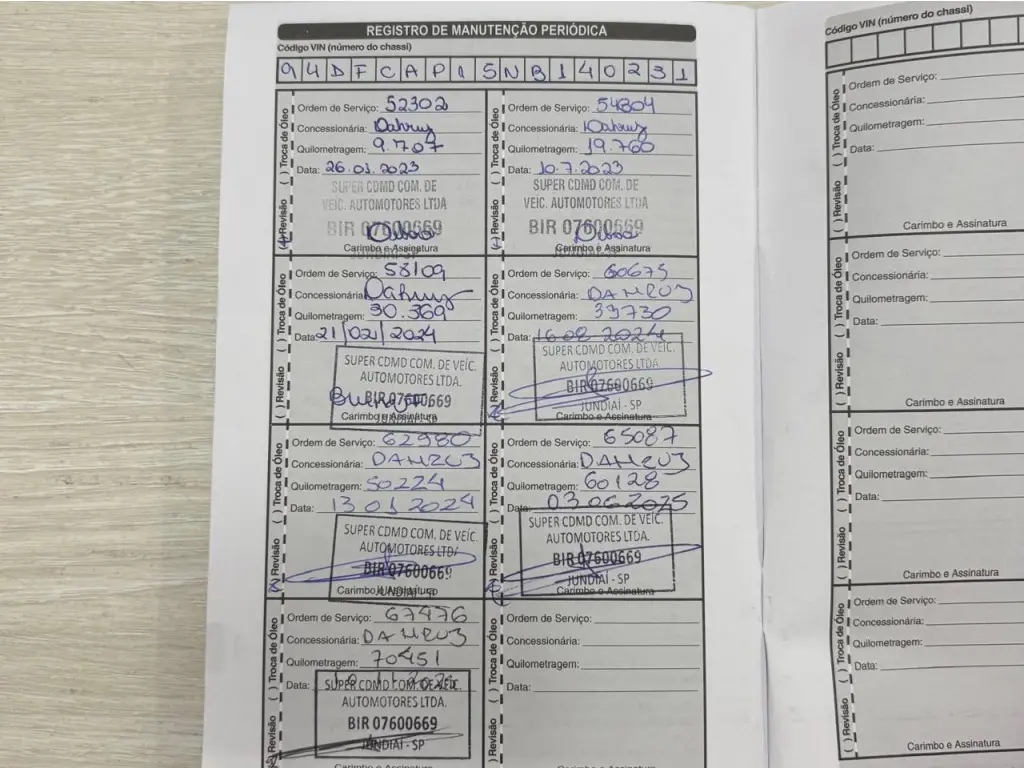 REGISTRO DE MANUTENÇÃO PERIÓDICA
Código VIN (número do chassi)
94DFCAP15NB140231
( ) Revisão ( ) Troca de Óleo
Ordem de Serviço: 52302
Concessionária: Dahruj
Quilometragem: 9.707
Data: 26.01.2023
SUPER CDMD COM. DE
VEÍC. AUTOMOTORES LTDA
BIR 07600669
JUNDIAÍ-SP
Carimbo e Assinatura
( ) Revisão ( ) Troca de Óleo
Ordem de Serviço: 54804
Concessionária: Dahruj
Quilometragem: 19.760
Data: 10.7.2023
SUPER CDMD COM. DE
VEÍC. AUTOMOTORES LTDA
BIR 07600669
JUNDIAÍ-SP
Carimbo e Assinatura
( ) Revisão ( ) Troca de Óleo
Ordem de Serviço: 58109
Concessionária: Dahruj
Quilometragem: 30.369
Data: 21/02/2024
SUPER CDMD COM. DE VEÍC.
AUTOMOTORES LTDA.
BIR 07600669
JUNDIAÍ-SP
Carimbo e Assinatura
( ) Revisão ( ) Troca de Óleo
Ordem de Serviço: 60675
Concessionária: DAHRUJ
Quilometragem: 39730
Data: 16 08 2024
SUPER CDMD COM. DE VEÍC.
AUTOMOTORES LTDA.
BIR 07600669
JUNDIAÍ - SP
Carimbo e Assinatura
( ) Revisão ( ) Troca de Óleo
Ordem de Serviço: 62980
Concessionária: DAHRUJ
Quilometragem: 50224
Data: 13 01 2024
SUPER CDMD COM. DE VEÍC.
AUTOMOTORES LTDA.
BIR 07600669
JUNDIAÍ - SP
Carimbo e Assinatura
( ) Revisão ( ) Troca de Óleo
Ordem de Serviço: 65087
Concessionária: DAHRUJ
Quilometragem: 60128
Data: 03 06 2025
SUPER CDMD COM. DE VEÍC.
AUTOMOTORES LTDA.
BIR 07600669
JUNDIAÍ - SP
Carimbo e Assinatura
( ) Revisão ( ) Troca de Óleo
Ordem de Serviço: 67476
Concessionária: DAHRUJ
Quilometragem: 70451
Data:
SUPER CDMD COM. DE VEÍC.
AUTOMOTORES LTDA.
BIR 07600669
JUNDIAÍ - SP
Carimbo e Assinatura
( ) Revisão ( ) Troca de Óleo
Ordem de Serviço:
Concessionária:
Quilometragem:
Data:
Carimbo e Assinatura
Código VIN (número do chassi)
( ) Revisão ( ) Troca de Óleo
Ordem de Serviço:
Concessionária:
Quilometragem:
Data:
Carimbo e Assinatura
( ) Revisão ( ) Troca de Óleo
Ordem de Serviço:
Concessionária:
Quilometragem:
Data:
Carimbo e Assinatura
( ) Revisão ( ) Troca de Óleo
Ordem de Serviço:
Concessionária:
Quilometragem:
Data:
Carimbo e Assinatura
( ) Revisão ( ) Troca de Óleo
Ordem de Serviço:
Concessionária:
Quilometragem:
Data:
Carimbo e Assinatura